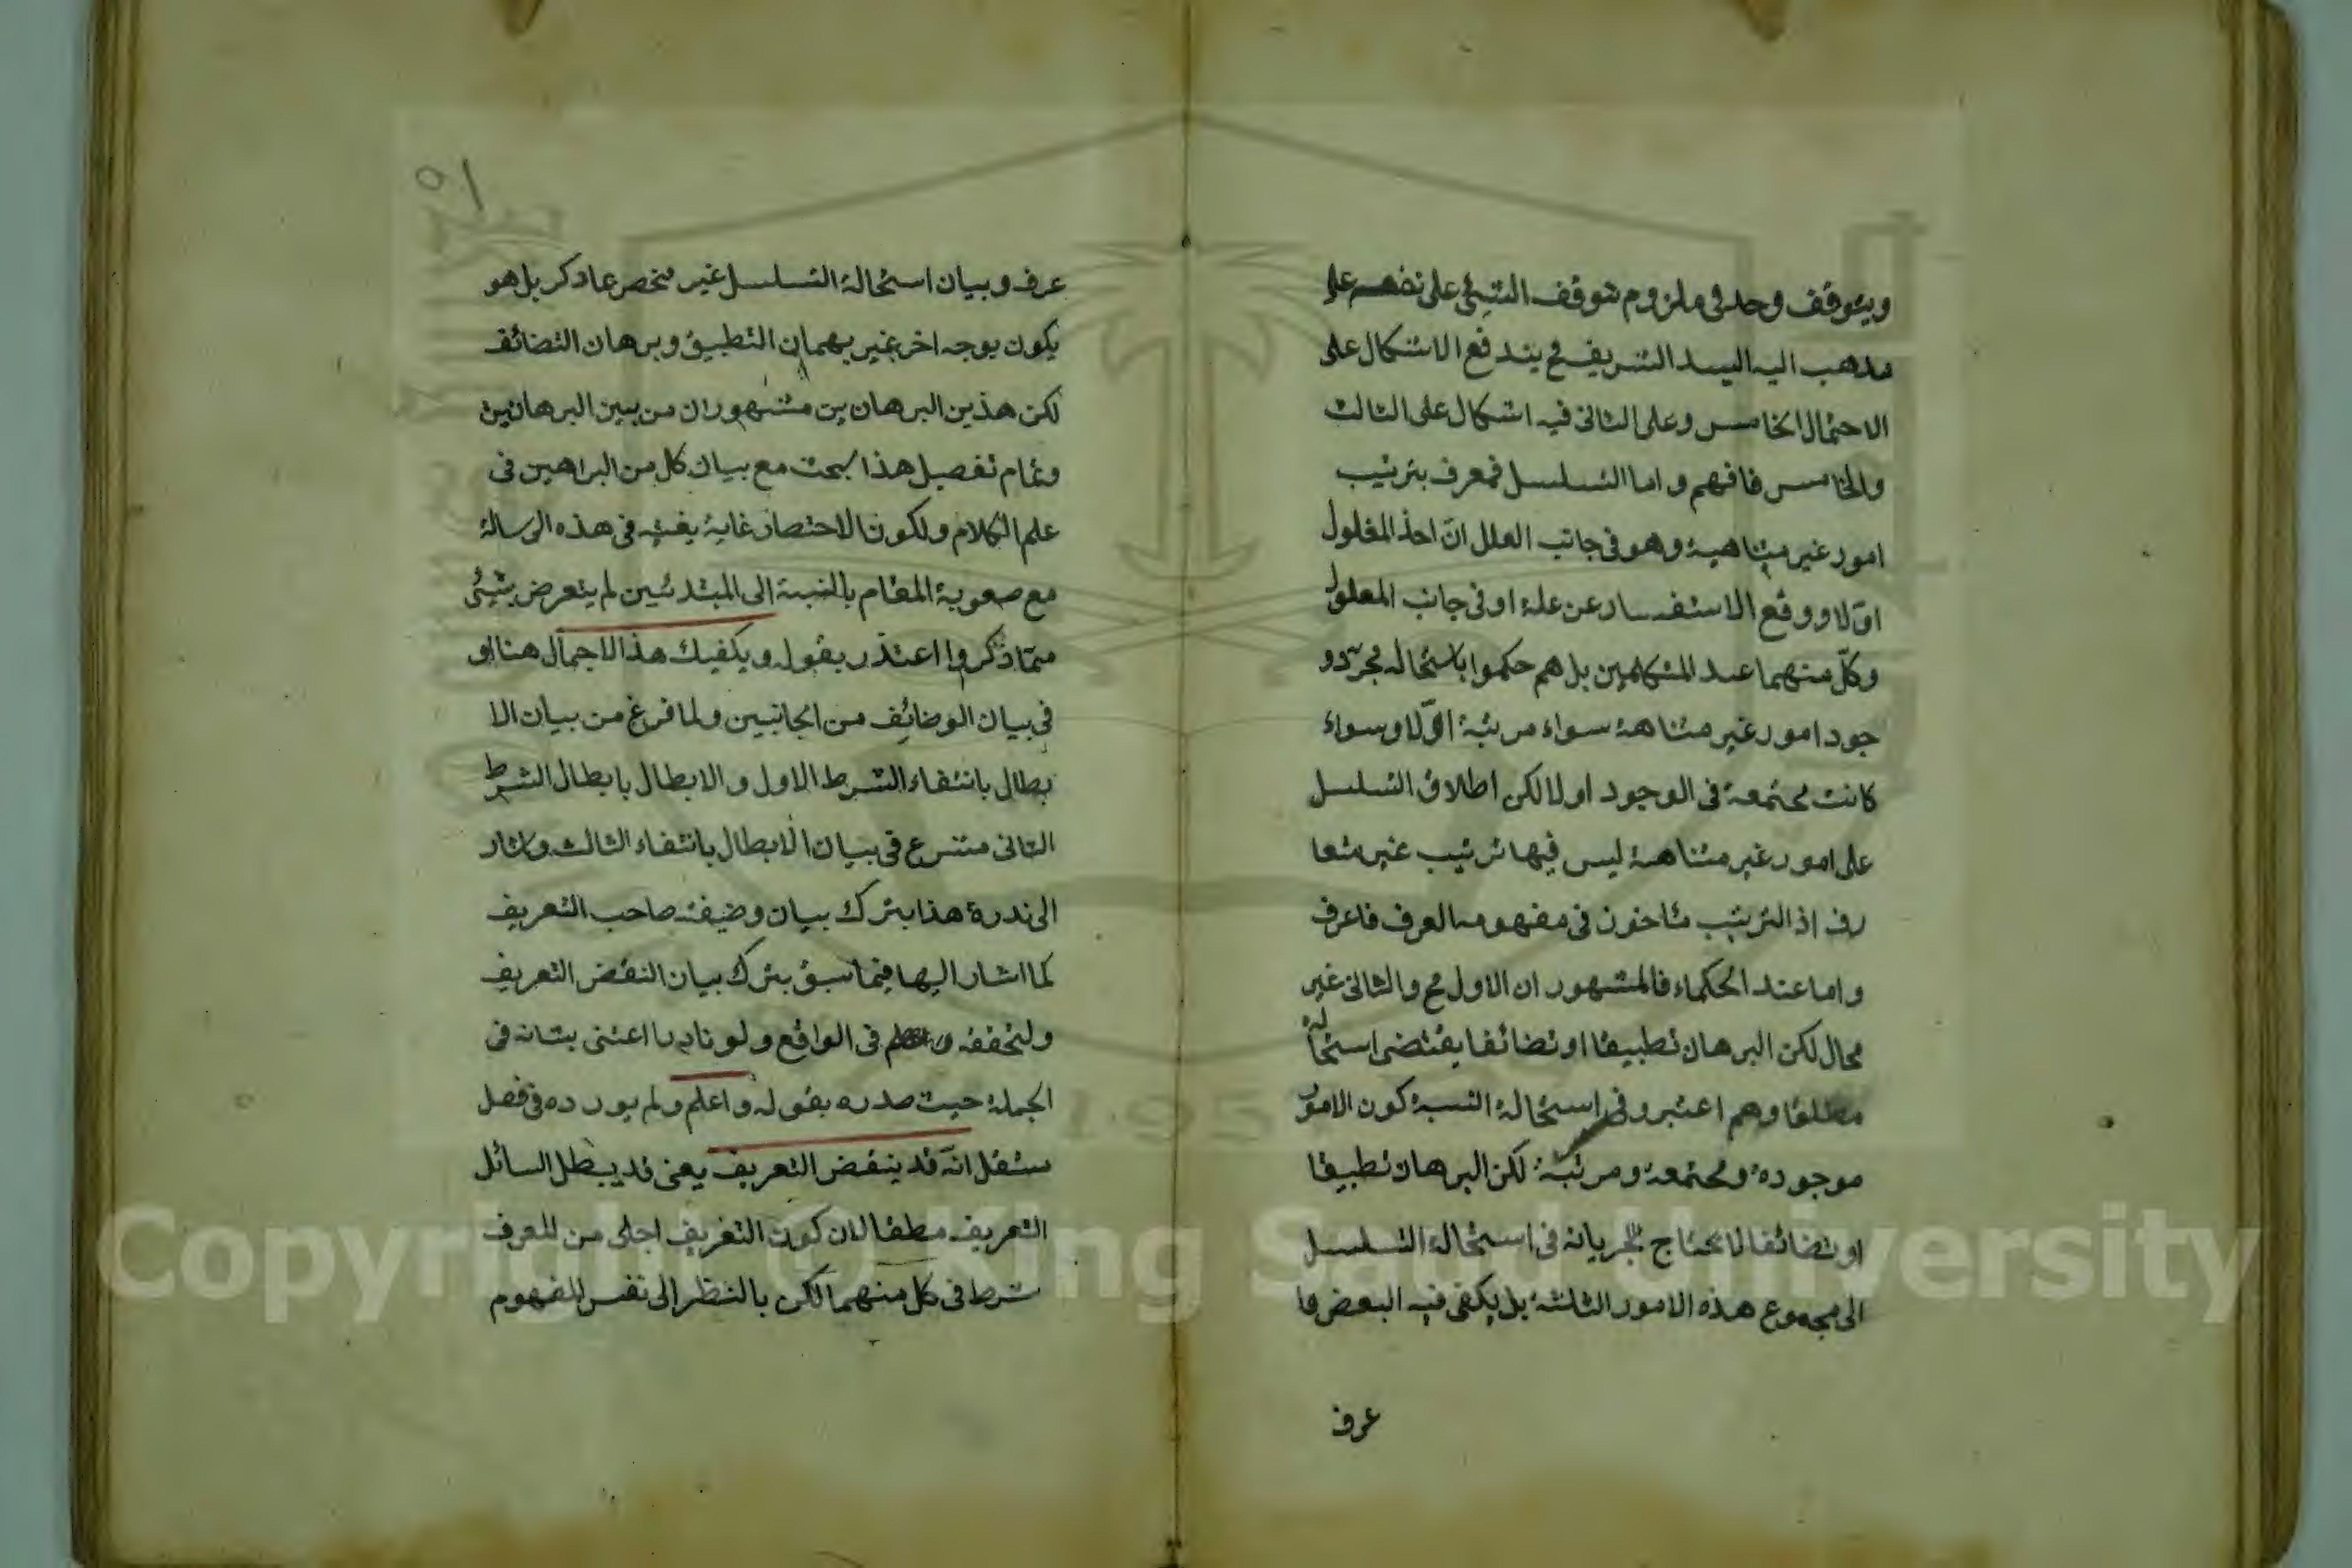 ويتوقف وحد في ملزوم توقف الشيئ على نفسه على
مذهب اليه السيد الشريف فح يندفع الاشكال على
الاحتمال الخامس وعلى الثانى فيه اشكال على الثالث
والخامس فافهم واما التسلسل فمعرف بترتيب
امور غير متناهية وهو فى جانب العلل ان اخذ المعلول
اوّلا ووقع الاستفسار عن علة او فى جانب المعلول
وكلّ منهما عند المتكلمين بل هم حكموا باستحاله مجرّد و
جود امور غير متناهية سواء مرتبة اوّلا وسواء
كانت مجتمعة فى الوجود اولا لكن اطلاق التسلسل
على امور غير متناهية ليس فيها ترتيب غير متعا
رف اذ الترتيب مأخوذ فى مفهومه العرف فاعرف
واما عند الحكماء فالمشهور ان الاول مح والثانى غير
محال لكن البرهان تطبيقا او تضائفا يقتضى استحالة
مطلقا وهم اعتبروا فى استحالة النسبة كون الامور
موجودة ومجتمعة ومرتبة لكن البرهان تطبيقا
او تضائفا لا يحتاج لجريانه فى استحالة التسلسل
الى مجموع هذه الامور الثلثة بل يكفى فيه البعض ما
عرف
٥١
عرف وبيان استحالة التسلسل غير منحصر عاد كر بل هو
يكون بوجه اخر غير برهان التطبيق وبرهان التضائف
لكن هذين البرهان ين مشهوران من بين البرهانين
وتمام تفصيل هذا بحث مع بيان كل من البراهين فى
علم الكلام ولكون الاختصار غاية بغيته فى هذه الرسالة
مع صعوبة المقام بالنسبة الى المبتدئين لم يتعرض بشيئ
ممّا ذكروا اعتذر بقوله ويكفيك هذا الاجمال هنا او
فى بيان الوضائف من الجانبين ولما فرغ من بيان الا
بطال بانتفاء الشرط الاول والابطال بابطال الشرط
الثانى متسرع فى بيان الابطال بانتفاء الثالث واشار
الى ندرة هذا بترك بيان وضيفة صاحب التعريف
كما اشار اليها فيما سبق بترك بيان النقض التعريف
ولتحققه فى الواقع ولو نادرا اعتنى بشانه فى
الجملة حيث صدره بقوله واعلم ولم يورده فى فصل
ستقل انّه قد ينقض التعريف يعنى قد يبطل السائل
التعريف مطقا لان كون التعريف اجلى من المعرف
شرط فى كل منهما لكن بالنظر الى نفس المفهوم
Copyright © King Saud University